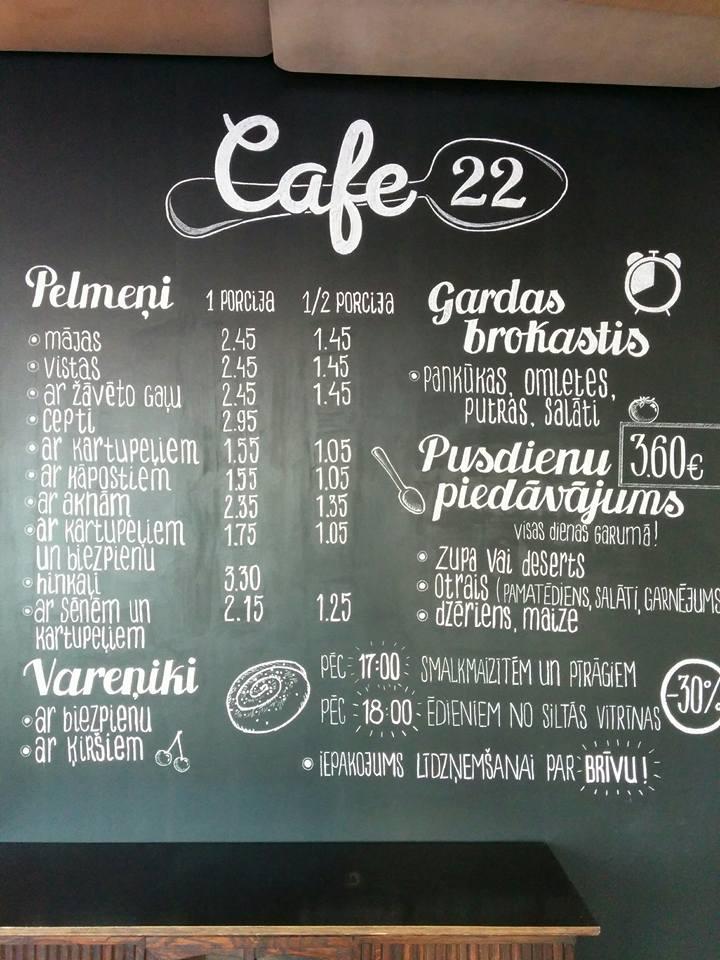 Cafe 22
Pelmeņi 1 PORCIJA 1/2 PORCIJA
mājas 2.45 1.45
vistas 2.45 1.45
ar žāvēto gaļu 2.45 1.45
cepti 2.95
ar kartupeļiem 1.55 1.05
ar kāpostiem 1.55 1.05
ar aknām 2.35 1.35
ar kartupeļiem 1.75 1.05
un biezpienu
hinkaļi 3.30
ar sēnēm un 2.15 1.25
kartupeļiem
Vareņiki
ar biezpienu
ar ķiršiem
Gardas
brokastis
pankūkas, omletes,
putras, salāti
Pusdienu 3.60€
piedāvājums
visas dienas garumā!
zupa vai deserts
otrais (PAMATĒDIENS, SALĀTI, GARNĒJUMS
dzēriens, maize
PĒC 17:00 SMALKMAIZĪTĒM UN PĪRĀGIEM -30%
PĒC 18:00 ĒDIENIEM NO SILTĀS VITRĪNAS
IEPAKOJUMS LĪDZŅEMŠANAI PAR BRĪVU!